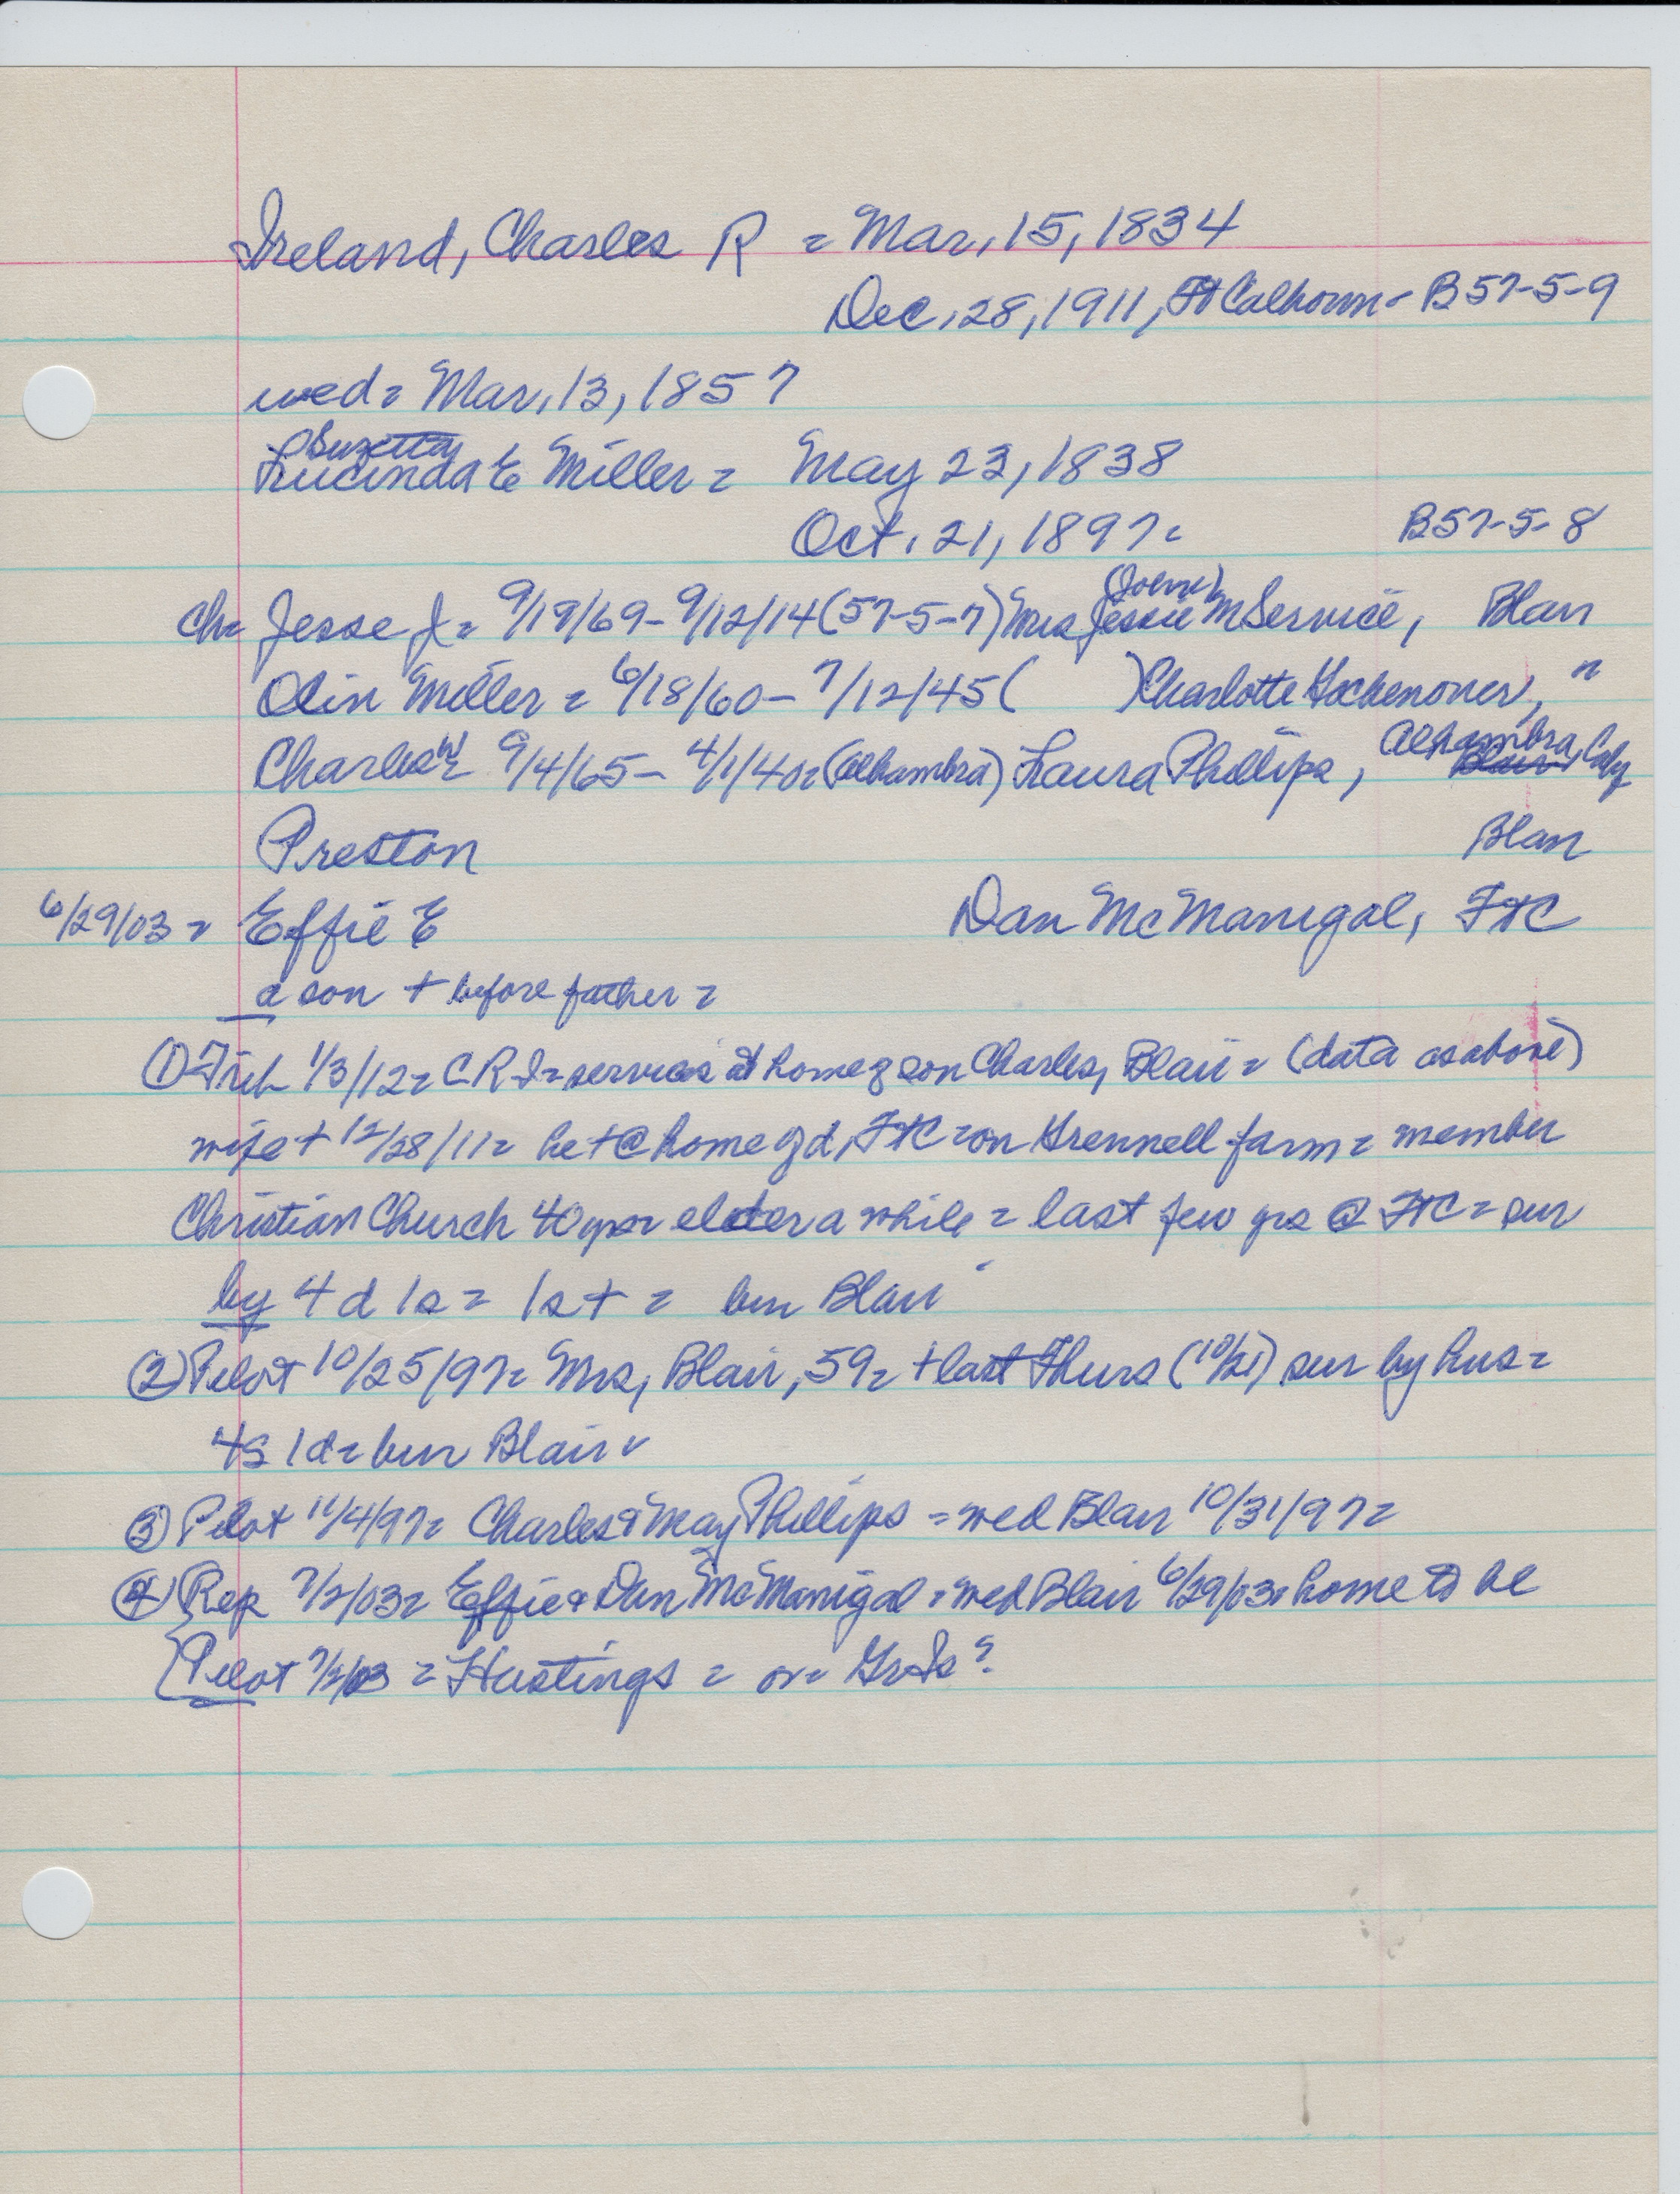 Ireland, Charles R = Mar. 15, 1834
Dec. 28, 1911, Ft Calhoun - B 57-5-9
wed = Mar. 13, 1857
Suzetta
Lucinda E Miller = May 23, 1838
Oct. 21, 1897 = B57-5-8
ch = Jesse J = 9/19/69 - 9/12/14 (57-5-7) Mrs Jessie M Service, Blair
Olin Miller = 6/18/60 - 7/12/45 ( ) Charlotte Hockenoner, "
Charles W 9/4/65 - 4/1/40 = (Alhambra) Laura Phillips, Alhambra, Blair
Preston Blair
6/29/03 = Effie E Dan McManigal, FtC
a son + before father =
① Trib 1/3/12 = C R I = services at home of son Charles, Blair = (data as above)
wife + 12/28/11 = he + @ home of d, FtC = on Grennell farm = member
Christian Church 40 yrs = elder a while = last few yrs @ FtC = sur
by 4 d 1s = 1s + = bur Blair
② Pilot 10/25/97 = Mrs, Blair, 59 = + last Thurs (10/21) sur by hus =
4s 1d = bur Blair
③ Pilot 11/4/97 = Charles & May Phillips = wed Blair 10/31/97 =
④ Rep 7/2/03 = Effie & Dan McManigal = wed Blair 6/29/03 = home to be
Pilot 7/2/03 = Hastings = or = Gr Is?